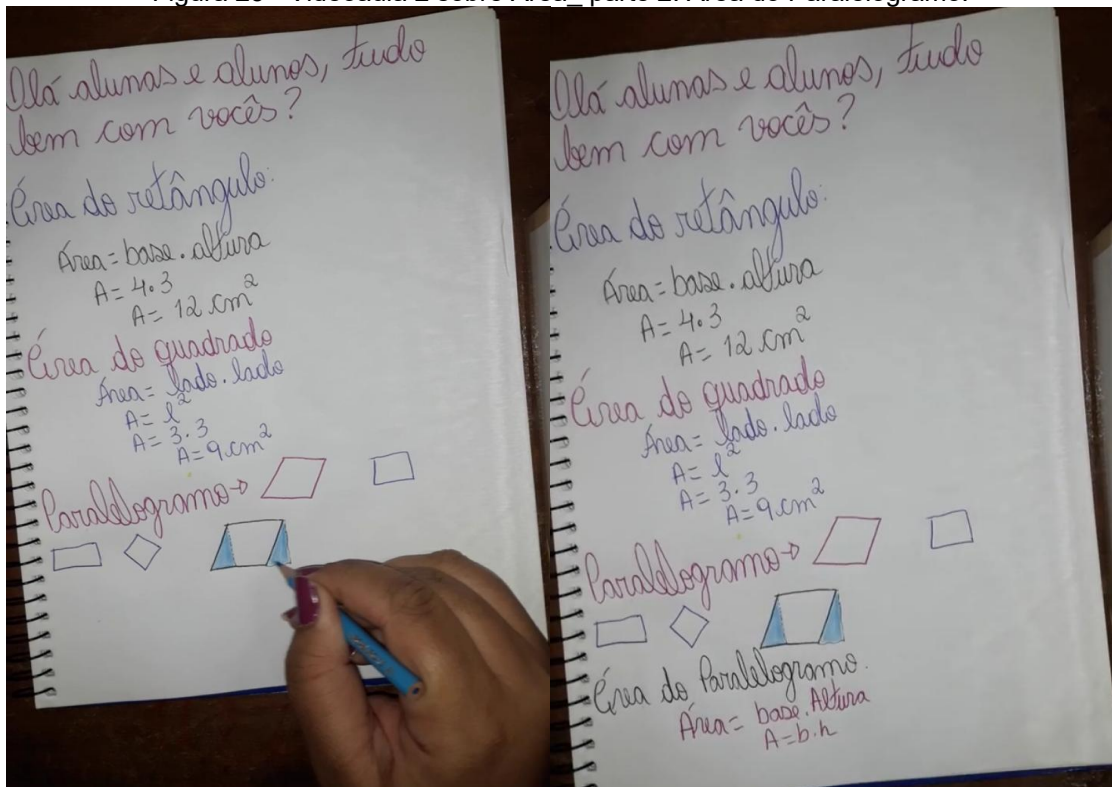 Olá alunas e alunos, tudo
bem com vocês?
Área do retângulo:
Área = base . altura
A = 4.3
A = 12 cm²
Área do quadrado
Área = lado . lado
A = l²
A = 3.3
A = 9 cm²
Paralelogramo →
Olá alunas e alunos, tudo
bem com vocês?
Área do retângulo:
Área = base . altura
A = 4.3
A = 12 cm²
Área do quadrado
Área = lado . lado
A = l²
A = 3.3
A = 9 cm²
Paralelogramo →
Área do Paralelogramo.
Área = base . Altura
A = b.h